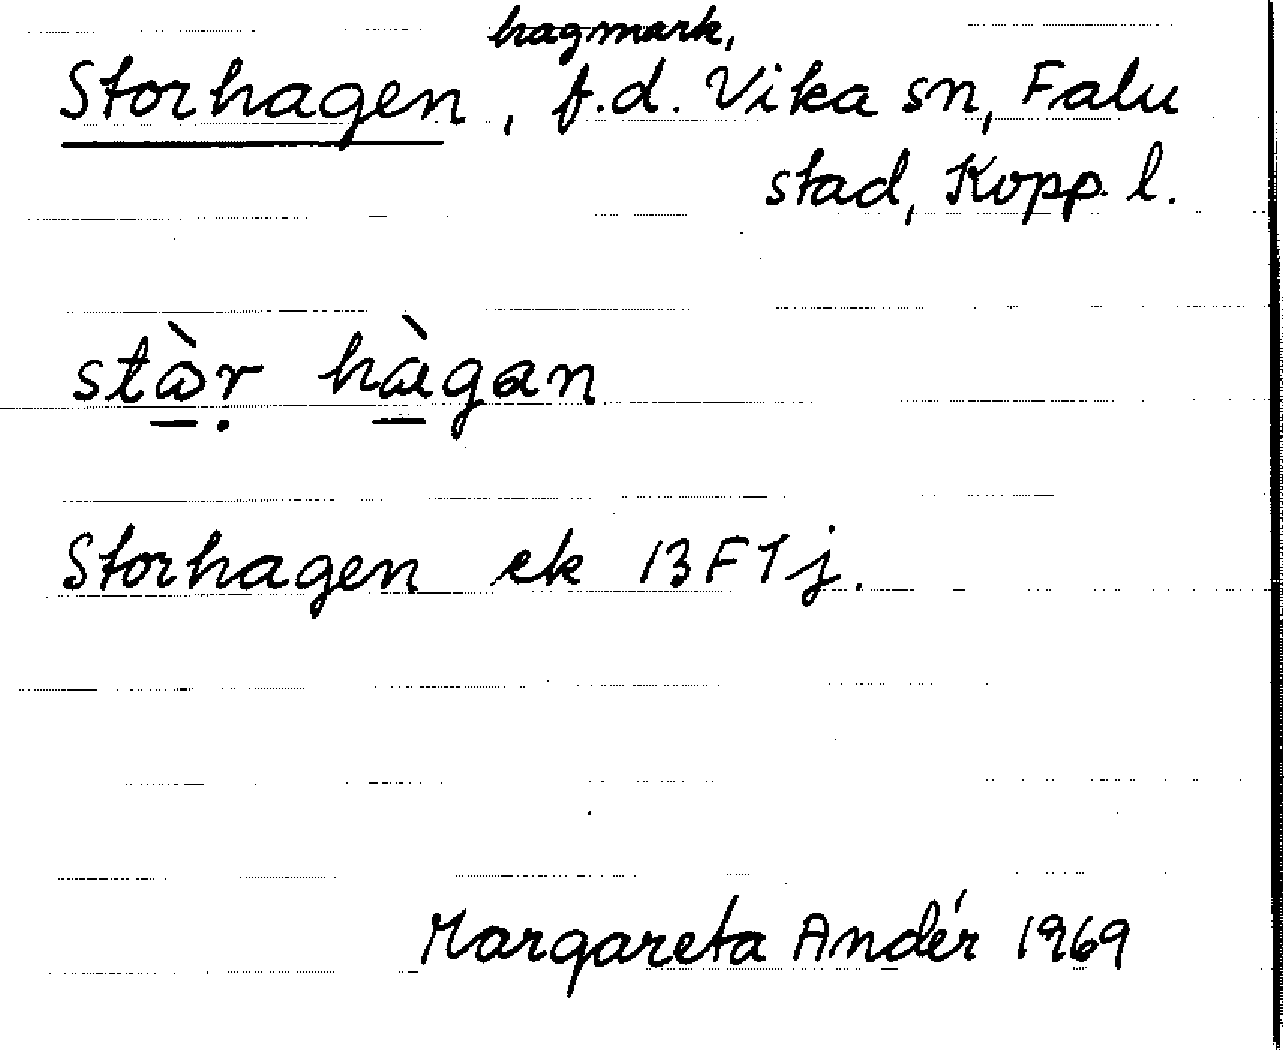 Storhagen, hagmark, f.d. Vika sn, Falu
stad, Kopp. l.
stὰ̱ṛ hὰ̱gan
Storhagen ek 13F1j.
Margareta Andér 1969